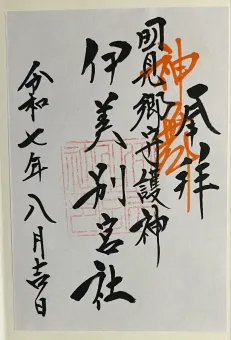 奉拝
明見郷守護神
伊美別宮社
令和七年八月吉日